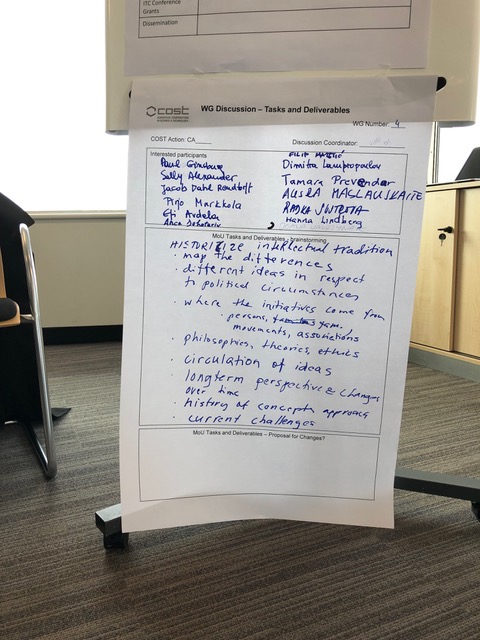 ITC Conference
Grants
Dissemination
cost
EUROPEAN COOPERATION
IN SCIENCE & TECHNOLOGY
WG Discussion – Tasks and Deliverables
WG Number: 4
COST Action: CA
Discussion Coordinator:
Interested participants
Paul Ginsborg
Sally Alexander
Jacob Dahl Rendtorff
Pirjo Markkola
Efi Avdela
Dimitra Lampropoulou
Tamara Prevendar
AUSRA MAGLAUSKAITE
Hanna Lindberg
MoU Tasks and Deliverables – brainstorming
HISTORICIZE intellectual tradition
· map the differences
· different ideas in respect
to political circumstances
· where the initiatives come from
· persons,
movements, associations
· philosophies, theories, ethics
· circulation of ideas
longterm perspective & changes
over time
· history of concepts approach
· current challenges
MoU Tasks and Deliverables – Proposal for Changes?